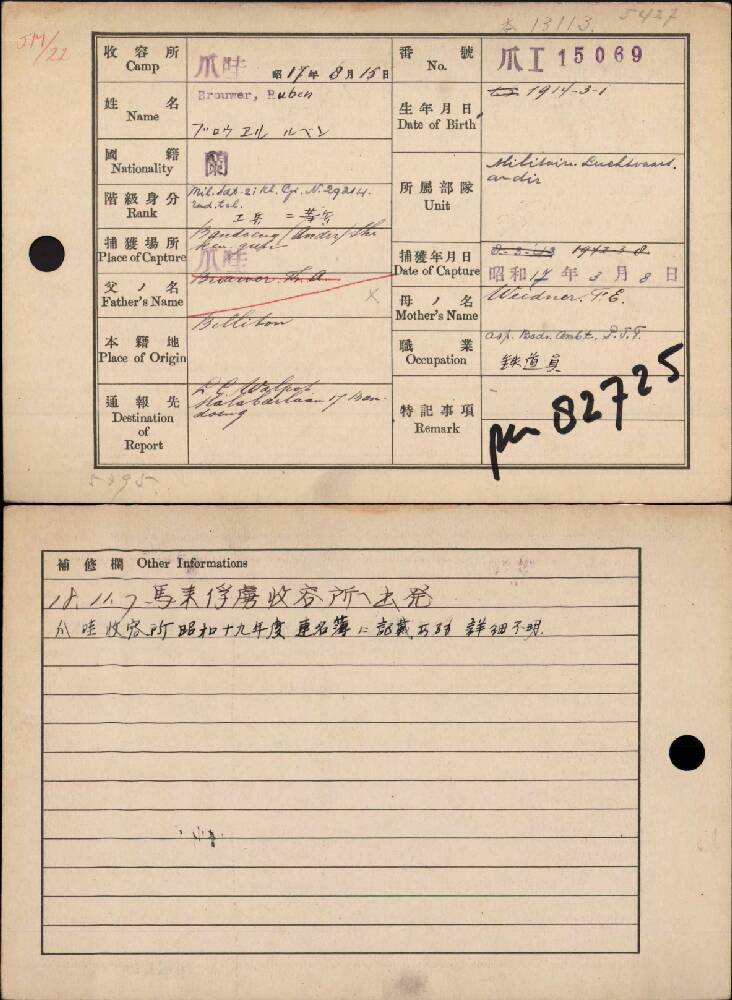 5427
13113.
5M/22
收容所 Camp
爪哇 昭17年8月15日
番號 No.
爪I 15069
姓名 Name
Brouwer, Ruben
ブロウエル ルベン
生年月日 Date of Birth
1914-3-1
國籍 Nationality
蘭
所属部隊 Unit
Militaire Luchtvaart.
Andir
階級身分 Rank
Mil. Sld. 2e Kl. N. 29214.
工兵 二等兵
捕獲場所 Place of Capture
Bandoeng (Andir)
爪哇
捕獲年月日 Date of Capture
8-3-'43 1942-3-8
昭和17年3月8日
父ノ名 Father's Name
Brouwer. Th. A
母ノ名 Mother's Name
Weidner. F.E.
本籍地 Place of Origin
Billiton
職業 Occupation
鉄道員
通報先 Destination of Report
17 Ban-
doeng
特記事項 Remark
82725
5395.
補修欄 Other Informations
18.11.7 馬来俘虜收容所へ出発
爪哇收容所昭和十九年度連名簿ニ記載アルモ詳細不明.